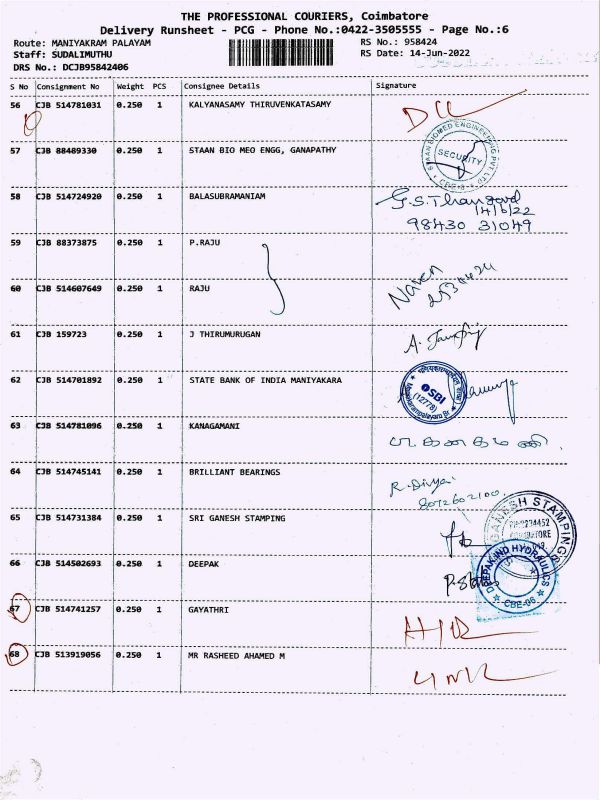 THE PROFESSIONAL COURIERS, Coimbatore
Delivery Runsheet - PCG - Phone No.:0422-3505555 - Page No.:6
Route: MANIYAKRAM PALAYAM RS No.: 958424
Staff: SUDALIMUTHU RS Date: 14-Jun-2022
DRS No.: DCJB95842406
S No Consignment No Weight PCS Consignee Details Signature
56 CJB 514781031 0.250 1 KALYANASAMY THIRUVENKATASAMY
57 CJB 88489330 0.250 1 STAAN BIO MEO ENGG, GANAPATHY
STAAN BIOMED ENGINEERING PVT LTD
SECURITY
CBE-6
58 CJB 514724920 0.250 1 BALASUBRAMANIAM G.S.Thangavel
14/6/22
98430 31049
59 CJB 88373875 0.250 1 P.RAJU
60 CJB 514607649 0.250 1 RAJU Naven
61 CJB 159723 0.250 1 J THIRUMURUGAN A.
62 CJB 514701892 0.250 1 STATE BANK OF INDIA MANIYAKARA
SBI
(12778)
Maniyakarampalayam
63 CJB 514781096 0.250 1 KANAGAMANI ப.கனகமணி
64 CJB 514745141 0.250 1 BRILLIANT BEARINGS R.Divya
8072602100
65 CJB 514731384 0.250 1 SRI GANESH STAMPING
GANESH STAMPING
66 CJB 514502693 0.250 1 DEEPAK
DEEPAK IND HYDRAULICS
CBE-06
67 CJB 514741257 0.250 1 GAYATHRI
68 CJB 513919056 0.250 1 MR RASHEED AHAMED M